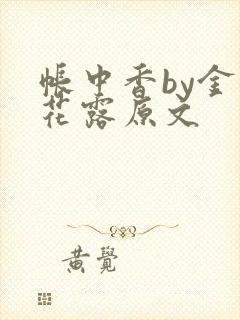 帐中香by金
花露原文
黄觉